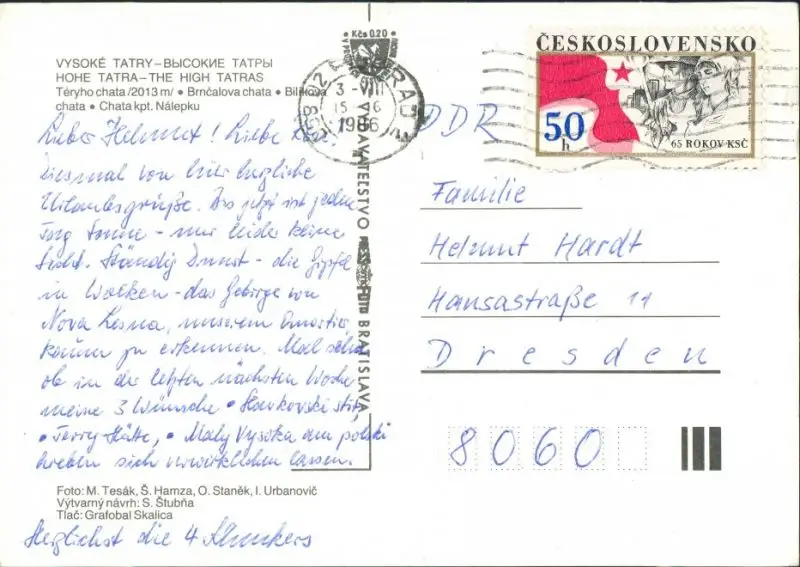 VYSOKÉ TATRY–ВЫСОКИЕ ТАТРЫ
HOHE TATRA–THE HIGH TATRAS
Téryho chata /2013 m/ • Brnčalova chata • Bilíkova
chata • Chata kpt. Nálepku
Lieber Helmut! Liebe
Diesmal von hier herzliche
Urlaubsgrüße. Bis jetzt ist jeden
Tag Sonne – nur leider keine
Sicht. Ständig Dunst – die Gipfel
in Wolken – das Gebirge von
Nova Lesna, unserem Quartier,
kaum zu erkennen. Mal sehn
ob in der letzten nächsten Woche
meine 3 Wünsche • Slavkovski stit,
• Terry-Hütte, • Maly Vysoka am polski
hreben sich verwirklichen lassen.
Foto: M. Tesák, Š. Hamza, O. Staněk, I. Urbanovič
Výtvarný návrh: S. Štubňa
Tlač: Grafobal Skalica
Herzlichst die 4
Kčs 0,20
VYDAVATEĽSTVO
BRATISLAVA
1986
ČESKOSLOVENSKO
50
h
65 ROKOV KSČ
DDR
Familie
Helmut Hardt
Hansastraße 11
Dresden
8060